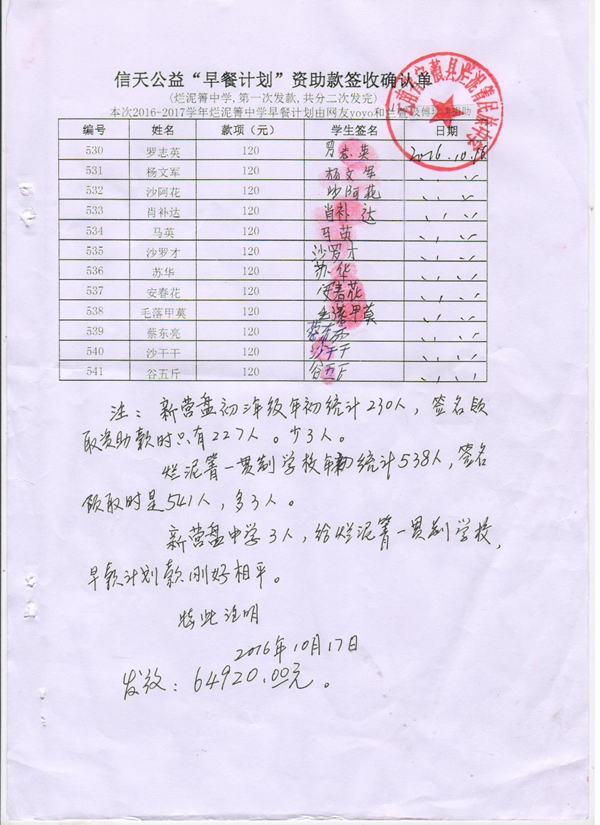 信天公益“早餐计划”资助款签收确认单
(烂泥箐中学,第一次发款,共分二次发完)
本次2016-2017学年烂泥箐中学早餐计划由网友yoyo和
编号 姓名 款项(元) 学生签名 日期
530 罗志英 120 罗志英 2016.10.16
531 杨文军 120 杨文军
532 沙阿花 120 沙阿花
533 肖补达 120 肖补达
534 马英 120 马英
535 沙罗才 120 沙罗才
536 苏华 120 苏华
537 安春花 120 安春花
538 毛落甲莫 120 毛落甲莫
539 蔡东亮 120
540 沙干干 120 沙干干
541 谷五斤 120 谷五斤
注：新营盘初 年级年初统计230人，签名领
取资助款时只有227人。少3人。
烂泥箐一贯制学校年初统计538人，签名
领取时是541人，多3人。
新营盘中学3人，给烂泥箐一贯制学校，
早款计划款刚好相平。
特此注明
2016年10月17日
发放：64920.00元。
宁蒗县烂泥箐民族中学